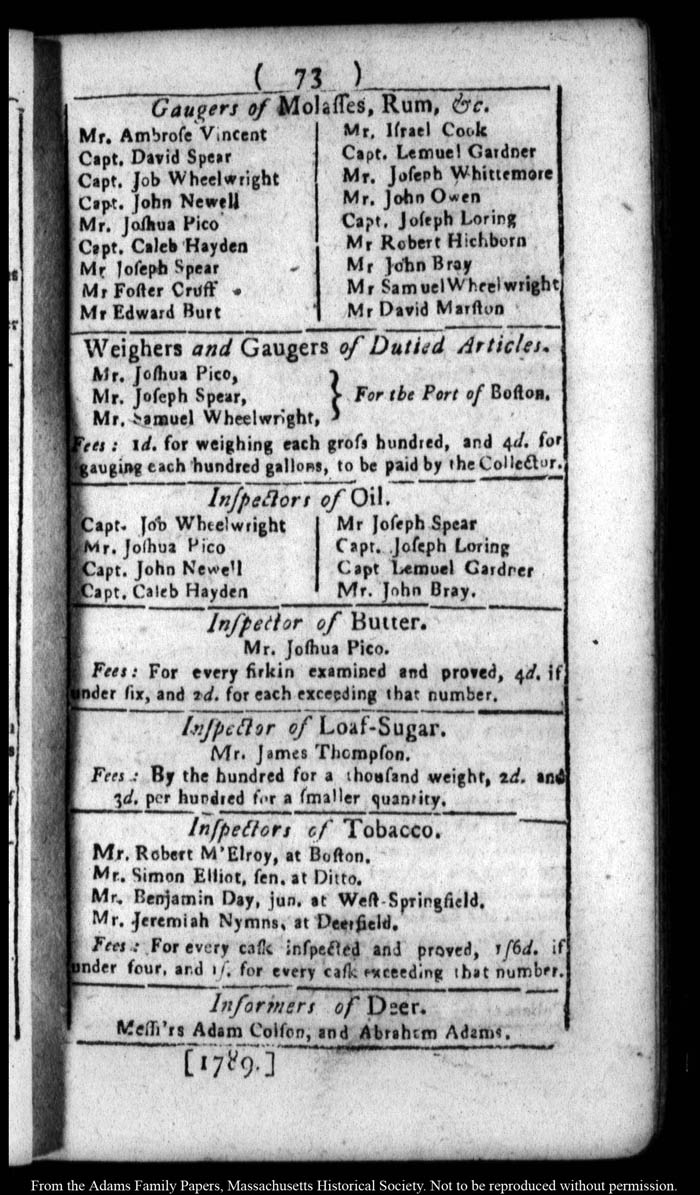 ( 73 )
Gaugers of Molaſſes, Rum, &c.
Mr. Ambroſe Vincent
Capt. David Spear
Capt. Job Wheelwright
Capt. John Newell
Mr. Joſhua Pico
Capt. Caleb Hayden
Mr Joſeph Spear
Mr Foſter Cruff
Mr Edward Burt
Mr. Iſrael Cook
Capt. Lemuel Gardner
Mr. Joſeph Whittemore
Mr. John Owen
Capt. Joſeph Loring
Mr Robert Hichborn
Mr John Bray
Mr Samuel Wheelwright
Mr David Marſton
Weighers and Gaugers of Dutied Articles.
Mr. Joſhua Pico,
Mr. Joſeph Spear,
Mr. Samuel Wheelwright,
} For the Port of Boſton.
Fees: 1d. for weighing each groſs hundred, and 4d. for
gauging each hundred gallons, to be paid by the Collector.
Inſpectors of Oil.
Capt. Job Wheelwright
Mr. Joſhua Pico
Capt. John Newell
Capt. Caleb Hayden
Mr Joſeph Spear
Capt. Joſeph Loring
Capt Lemuel Gardner
Mr. John Bray.
Inſpector of Butter.
Mr. Joſhua Pico.
Fees: For every firkin examined and proved, 4d. if
under ſix, and 2d. for each exceeding that number.
Inſpector of Loaf-Sugar.
Mr. James Thompſon.
Fees: By the hundred for a thouſand weight, 2d. and
3d. per hundred for a ſmaller quantity.
Inſpectors of Tobacco.
Mr. Robert M'Elroy, at Boſton.
Mr. Simon Elliot, ſen. at Ditto.
Mr. Benjamin Day, jun. at Weſt-Springfield.
Mr. Jeremiah Nymns, at Deerfield.
Fees: For every caſk inſpected and proved, 1ſ6d. if
under four, and 1ſ. for every caſk exceeding that number.
Informers of Deer.
Meſſ'rs Adam Colſon, and Abraham Adams.
[1789.]
From the Adams Family Papers, Massachusetts Historical Society. Not to be reproduced without permission.